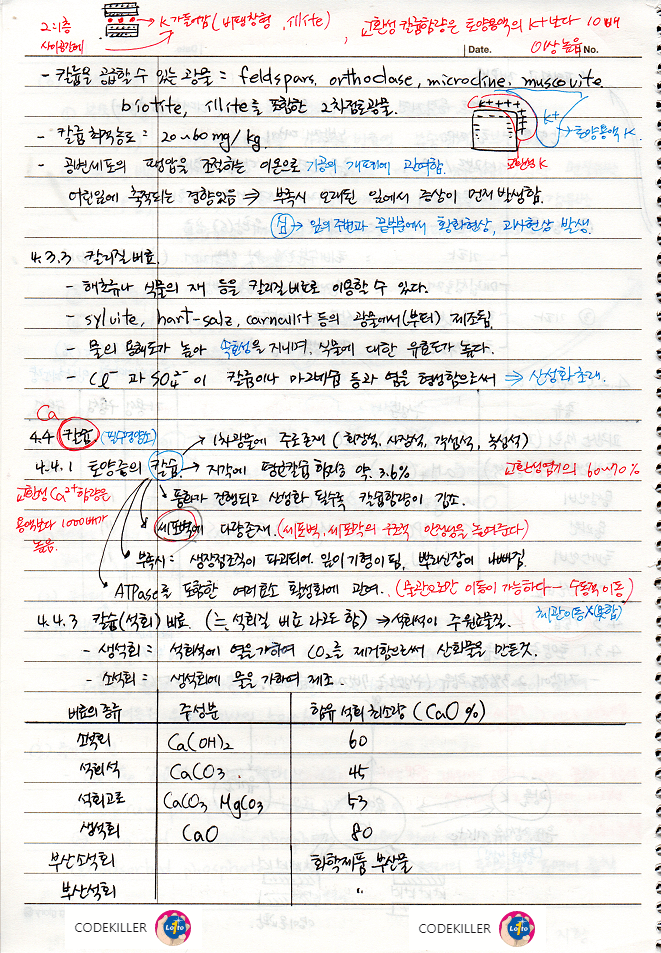 2:1층 사이공간에
K가 들어감 (비팽창형, illite)
, 교환성 칼륨함량은 토양용액의 K+보다 10배 이상 높음
Date.
No.
- 칼륨을 공급할 수 있는 광물 = feldspars, orthoclase, microcline, muscovite,
biotite, illite를 포함한 2차점토광물.
- 칼륨 최적농도 = 20~60 mg/kg.
K++++
K+
→ 토양용액 K.
교환성 K
- 공변세포의 팽압을 조절하는 이온으로 기공의 개폐에 관여함.
어린잎에 축적되는 경향있음 ⇒ 부족시 오래된 잎에서 증상이 먼저 발생함.
→ 잎의 주변과 끝부분에서 황화현상, 괴사현상 발생.
4.3.3 칼리질 비료.
- 해초류나 식물의 재 등을 칼리질 비료로 이용할 수 있다.
- sylvite, hart-salz, carnallite 등의 광물에서(부터) 제조됨.
- 물의 용해도가 높아 속효성을 지니며, 식물에 대한 유효도가 높다.
- Cl⁻ 과 SO₄²⁻ 이 칼륨이나 마그네슘 등과 염을 형성함으로써 ⇒ 산성화 초래.
Ca
4.4 칼슘 (필수영양소)
→ 1차광물에 주로 존재 (회장석, 사장석, 각섬석, 녹섬석)
4.4.1 토양중의 칼슘. → 지각에 평균칼슘 함량 약 3.6%
교환성염기의 60~70%
교환성 Ca²⁺ 함량은
용액보다 1000배가
높음.
풍화가 진행되고 산성화 될수록 칼슘함량이 감소.
세포벽에 다량존재. (세포벽, 세포각의 구조적 안정성을 높여준다)
부족시 : 생장점조직이 파괴되어 잎이 기형이 됨, 뿌리신장이 나빠짐.
ATPase를 포함한 여러효소 활성화에 관여. (물관으로만 이동이 가능하다 - 수동적 이동)
체관이동 X (못함)
4.4.3 칼슘(석회)비료. (는 석회질 비료 라고도 함) → 석회석이 주원료물질.
- 생석회 = 석회석에 열을 가하여 CO₂를 제거함으로써 산화물을 만든것.
- 소석회 = 생석회에 물을 가하여 제조.
비료의 종류 주성분 함유 석회 최소량 (CaO %)
소석회 Ca(OH)₂ 60
석회석 CaCO₃ . 45
석회고토 CaCO₃ MgCO₃ 53
생석회 CaO 80
부산소석회 화학제품 부산물
부산석회 "
CODEKILLER Lotto CODEKILLER Lotto